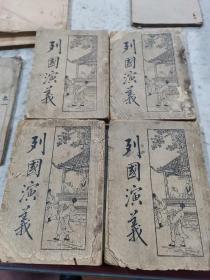 列國演義
列國演義
列國演義
列國演義